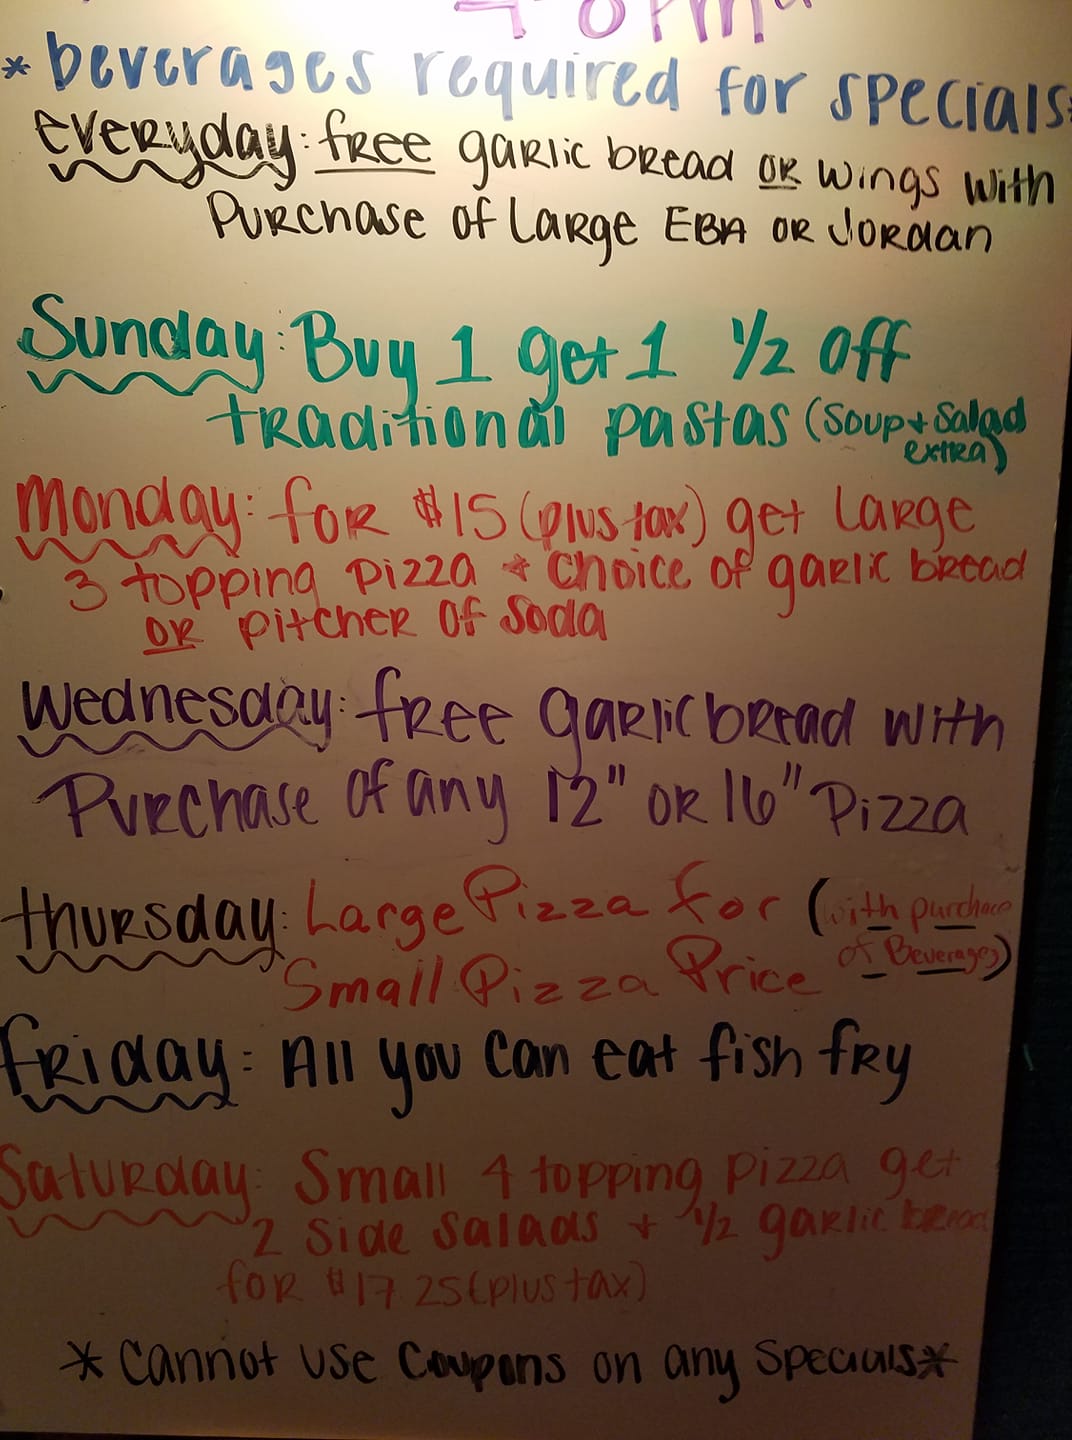 * beverages required for specials*
everyday: free garlic bread or wings with
Purchase of Large EBA or Jordan
Sunday: Buy 1 get 1 1/2 off
traditional pastas (Soup + Salad
extra)
Monday: for $15 (plus tax) get Large
3 topping pizza + choice of garlic bread
or pitcher of soda
Wednesday: free garlic bread with
Purchase of any 12" or 16" Pizza
thursday: Large Pizza for (with purchase
Small Pizza Price of Beverages)
friday: All you can eat fish fry
Saturday: Small 4 topping pizza get
2 side salads + 1/2 garlic bread
for $17.25 (plus tax)
* Cannot use Coupons on any specials *